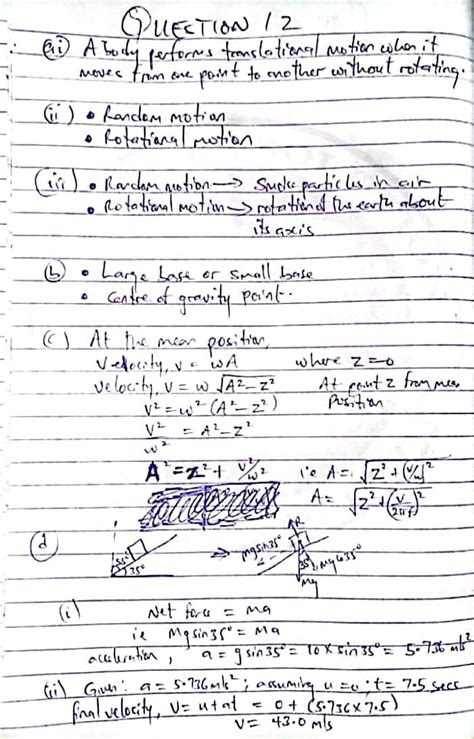 QUESTION 12
(ai) A body performs translational motion when it
moves from one point to another without rotating.
(ii) • Random motion
• Rotational motion
(iii) • Random motion → Smoke particles in air
• Rotational motion → rotation of the earth about
its axis
(b) • Large base or small base
• Centre of gravity point.
(c) At the mean position,
Velocity, v = ωA where z = 0
velocity, v = ω √A² - z² At point z from mean
V² = ω² (A² - z²) Position
V²/ω² = A² - z²
A² = z² + V²/ω² i.e A = √z² + (V/ω)²
A = √z² + (V/2πf)²
(d) 35° 35° ⇒ Mgsin35° R 35° Mg
(i) Net force = ma
ie Mgsin35° = Ma
acceleration, a = gsin35° = 10 × sin35° = 5.736 m/s²
(ii) Given: a = 5.736 m/s²; assuming u = 0; t = 7.5 secs
final velocity, V = u + at = 0 + (5.736 × 7.5)
V = 43.0 m/s